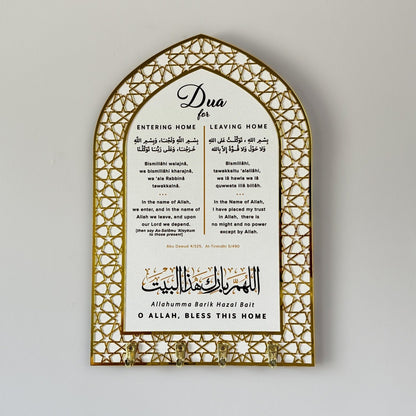 Dua
for
ENTERING HOME
بِسْمِ اللهِ وَلَجْنَا، وَبِسْمِ اللهِ
خَرَجْنَا، وَعَلَى رَبِّنَا تَوَكَّلْنَا
Bismillāhi walajnā,
wa bismillāhi kharajnā,
wa 'ala Rabbinā
tawakkalnā.
In the name of Allah,
we enter, and in the name of
Allah we leave, and upon
our Lord we depend.
[then say As-Salāmu 'Alaykum
to those present]
LEAVING HOME
بِسْمِ اللهِ ، تَوَكَّلْتُ عَلَى اللهِ
وَلَا حَوْلَ وَلَا قُوَّةَ إِلَّا بِاللهِ
Bismillāhi,
tawakkaltu 'alallāhi,
wa lā hawla wa lā
quwwata illā billāh.
In the Name of Allah,
I have placed my trust
in Allah, there is
no might and no power
except by Allah.
Abu Dawud 4/325, At-Tirmidhi 5/490
اللهم بارك هذا البيت
Allahumma Barik Hazal Bait
O ALLAH, BLESS THIS HOME